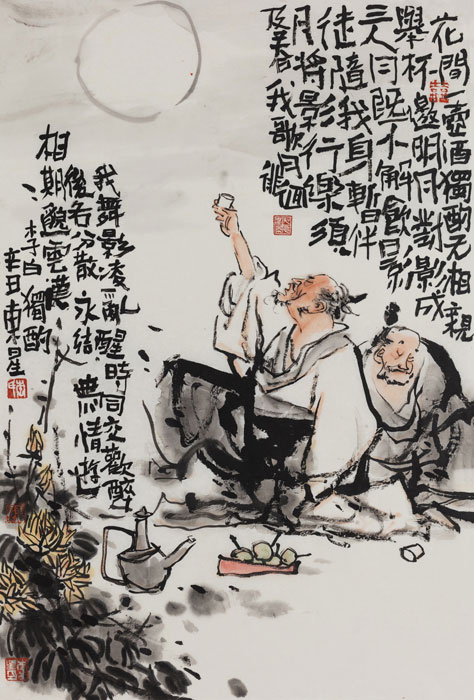 花間一壺酒獨酌无相親
舉杯邀明月對影成
三人月既不解飲影
徒隨我身暫伴
月將影行樂須
及春我歌月徘
我舞影凌亂醒時同交歡醉
後各分散永結無情遊
相期邈雲漢
李白獨酌
辛丑東星